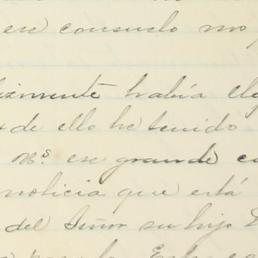 ese consuelo no p
izmente había ele
de ello he tenido
Ns. ese grande c
noticia que está
del Señor su hijo